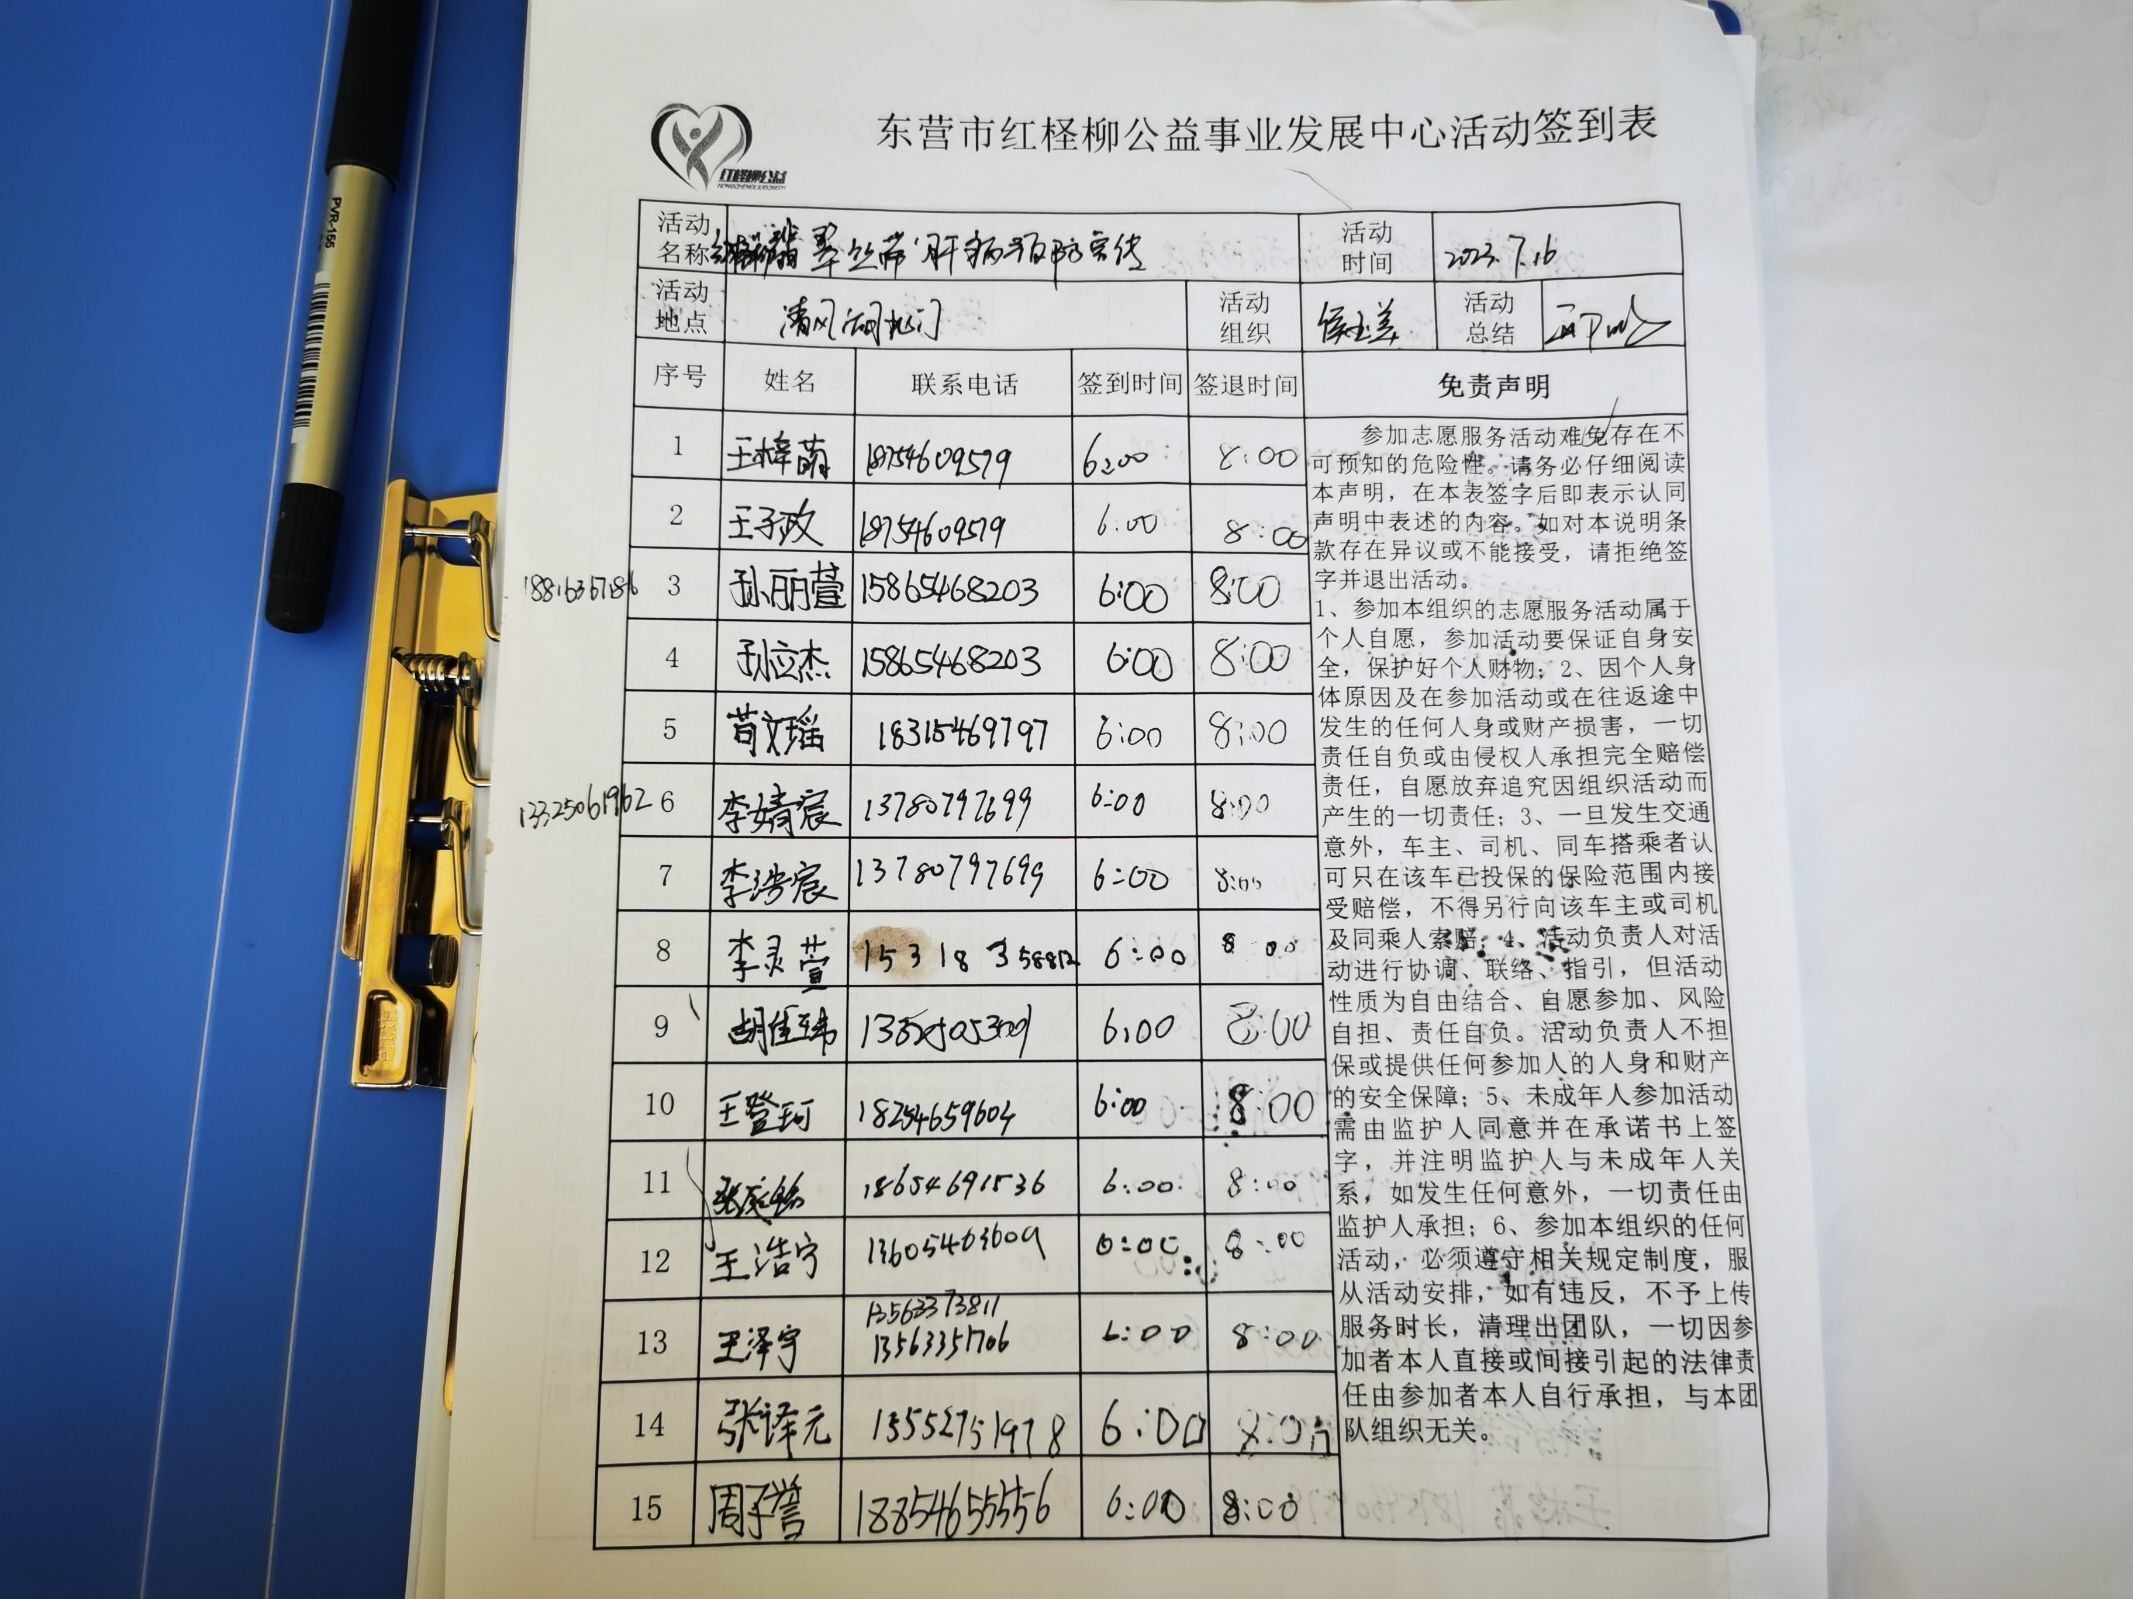 PVR-155
红柽柳公益
东营市红柽柳公益事业发展中心活动签到表
活动名称 翠丝带 肝病预防宣传 活动时间 2023.7.16
活动地点 清风湖北门 活动组织 侯玉美 活动总结
序号 姓名 联系电话 签到时间 签退时间 免责声明
1 王梓萌 18754609579 6:00 8:00
2 王子政 18754609579 6:00 8:00
18816357186 3 孙丽萱 15865468203 6:00 8:00
4 孙立杰 15865468203 6:00 8:00
5 苟文瑶 18315469797 6:00 8:00
13325061962 6 李婧宸 13780797699 6:00 8:00
7 李浩宸 13780797699 6:00 8:00
8 李灵萱 15318358812 6:00 8:00
9 胡佳玮 6:00 8:00
10 王登珂 18254659604 6:00 8:00
11 18654691536 6:00 8:00
12 王浩宇 13605463609 6:00 8:00
13 王泽宇 13563373811
13563351706 6:00 8:00
14 张译元 15552751978 6:00 8:00
15 周子誉 18854655556 6:00 8:00
参加志愿服务活动难免存在不
可预知的危险性。请务必仔细阅读
本声明，在本表签字后即表示认同
声明中表述的内容。如对本说明条
款存在异议或不能接受，请拒绝签
字并退出活动。
1、参加本组织的志愿服务活动属于
个人自愿，参加活动要保证自身安
全，保护好个人财物；2、因个人身
体原因及在参加活动或在往返途中
发生的任何人身或财产损害，一切
责任自负或由侵权人承担完全赔偿
责任，自愿放弃追究因组织活动而
产生的一切责任；3、一旦发生交通
意外，车主、司机、同车搭乘者认
可只在该车已投保的保险范围内接
受赔偿，不得另行向该车主或司机
及同乘人索赔；4、活动负责人对活
动进行协调、联络、指引，但活动
性质为自由结合、自愿参加、风险
自担、责任自负。活动负责人不担
保或提供任何参加人的人身和财产
的安全保障；5、未成年人参加活动
需由监护人同意并在承诺书上签
字，并注明监护人与未成年人关
系，如发生任何意外，一切责任由
监护人承担；6、参加本组织的任何
活动，必须遵守相关规定制度，服
从活动安排，如有违反，不予上传
服务时长，清理出团队，一切因参
加者本人直接或间接引起的法律责
任由参加者本人自行承担，与本团
队组织无关。